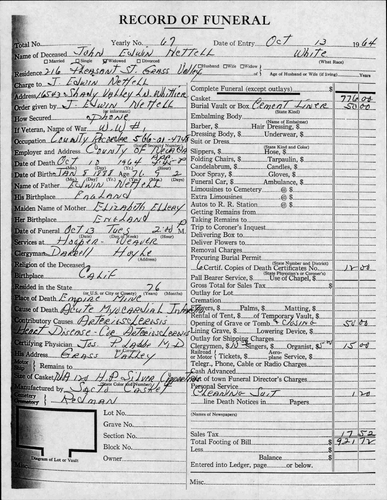 RECORD OF FUNERAL
Total No. Yearly No. 67 Date of Entry Oct 13 1964
Name of Deceased John Edwin Nettell White
Married Single Widowed Divorced (What Race)
Residence 216 Pleasant St Grass Valley Husband Wife Widow of Age of Husband or Wife (if living) Years
Charge to J Edwin Nettell
Address Whittier Complete Funeral (except outlays) $
Order given by J Edwin Nettell Casket 776.00
How Secured Phone Burial Vault or Box Cement Liner 50.00
If Veteran, Name of War W.W. #1 Embalming Body
Occupation County Recorder Barber, $ Hair Dressing, $
Employer and Address County of Nevada Dressing Body, $ Underwear, $
Date of Death Oct 10 1964 Suit or Dress
Date of Birth Jan 8 1888 Age 76 9 2 Slippers, $ Hose, $
Name of Father Edwin Nettell Folding Chairs, $ Tarpaulin, $
His Birthplace England Candelabrum, $ Candles, $
Maiden Name of Mother Elizabeth Ellery Door Spray, $ Gloves, $
Her Birthplace England Funeral Car, $ Ambulance, $
Date of Funeral Oct 13 Tues 2:00 Limousines to Cemetery @ $
Services at Hooper-Weaver Extra Limousines @ $
Clergyman Darrell Hoyle Autos to R. R. Station @ $
Religion of the Deceased Getting Remains
Birthplace Calif Taking Remains
Resided in the State 76 Trip to Coroner's Inquest
Place of Death Empire Mine Delivering Box
Cause of Death Acute Myocardial Delivering Flowers
Contributory Causes Arteriosclerosis Removal Charges
Heart Disease Procuring Burial Permit
Certifying Physician Jos P Ladd M.D. 6 Certif. Copies of Death Certificates No. 12.00
His Address Grass Valley Pall Bearer Service, $ Use of Chapel, $
Remains to Gross Total for Sales Tax $
Size of Casket H.P. Silver Outlay for Lot
Manufactured by Sac Casket Flowers, $ Palms, $ Matting, $
Cemetery Redman Rental of Tent, $ of Temporary Vault, $
Lot No. Opening of Grave or Tomb & Closing 50.00
Grave No. Lining Grave, $ Lowering Device, $
Section No. Outlay for Shipping Charges
Block No. Clergymen, $ Singers, $ Organist, $ 15.00
Owner Railroad or Motor Tickets, $ Aeroplane Service, $
Diagram of Lot or Vault Telegr., Phone, Cable or Radio Charges
Cash Advanced
Out of town Funeral Director's Charges
Personal Services
Cleaning Suit 1.20
line Death Notices in Papers
(Names of Newspapers)
Sales Tax 17.52
Total Footing of Bill $ 921.72
Less $
Balance $
Entered into Ledger, page or below.
Misc.